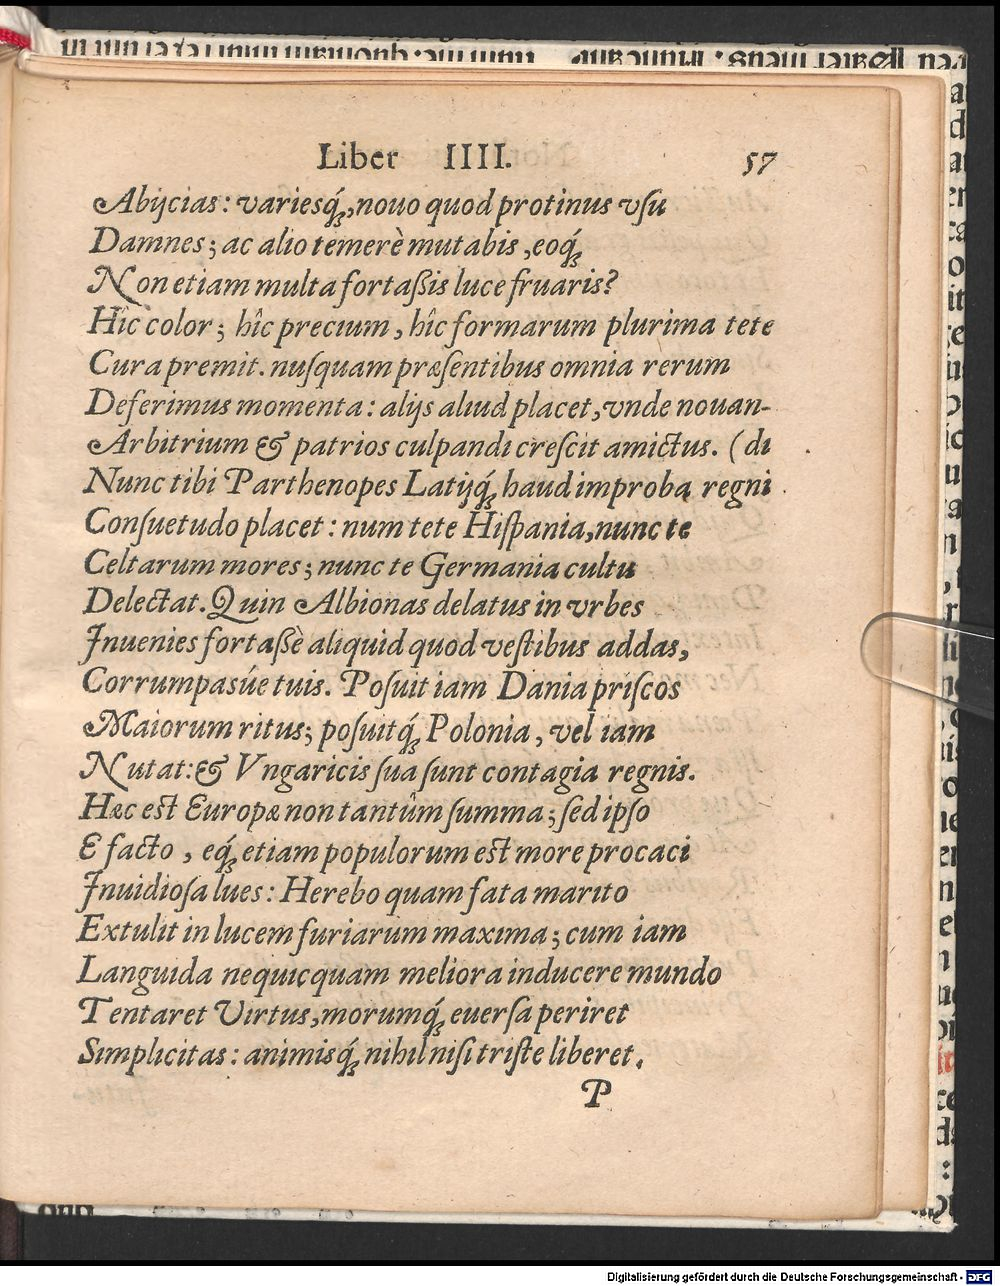 Liber IIII. 57
Abijcias: variesq́;, nouo quod protinus vſu
Damnes; ac alio temerè mutabis, eoq́;
Non etiam multa fortaßis luce fruaris?
Hîc color; hîc precium, hîc formarum plurima tete
Cura premit. nuſquam præſentibus omnia rerum
Deferimus momenta: alijs aliud placet, vnde nouan-
Arbitrium & patrios culpandi creſcit amictus. (di
Nunc tibi Parthenopes Latijq́; haud improba regni
Conſuetudo placet: num tete Hiſpania, nunc te
Celtarum mores; nunc te Germania cultu
Delectat. Quin Albionas delatus in vrbes
Inuenies fortaßè aliquid quod veſtibus addas,
Corrumpasúe tuis. Poſuit iam Dania priſcos
Maiorum ritus; poſuitq́; Polonia, vel iam
Nutat: & Vngaricis ſua ſunt contagia regnis.
Hæc est Europæ non tantûm ſumma; ſed ipſo
E facto, eq́; etiam populorum est more procaci
Inuidioſa lues: Herebo quam fata marito
Extulit in lucem furiarum maxima; cum iam
Languida nequicquam meliora inducere mundo
Tentaret Virtus, morumq́; euerſa periret
Simplicitas: animisq́; nihil niſi triſte liberet.
P
Digitalisierung gefördert durch die Deutsche Forschungsgemeinschaft - DFG